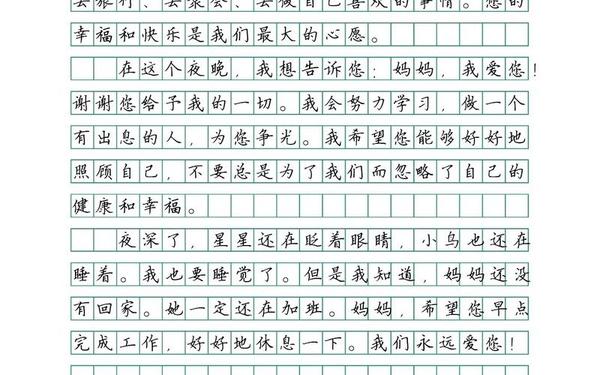 去旅行、去聚会、去做自己喜欢的事情。您的
幸福和快乐是我们最大的心愿。
在这个夜晚，我想告诉您：妈妈，我爱您！
谢谢您给予我的一切。我会努力学习，做一个
有出息的人，为您争光。我希望您能够好好地
照顾自己，不要总是为了我们而忽略了自己的
健康和幸福。
夜深了，星星还在眨着眼睛，小鸟也还在
睡着。我也要睡觉了。但是我知道，妈妈还没
有回家。她一定还在加班。妈妈，希望您早点
完成工作，好好地休息一下。我们永远爱您！